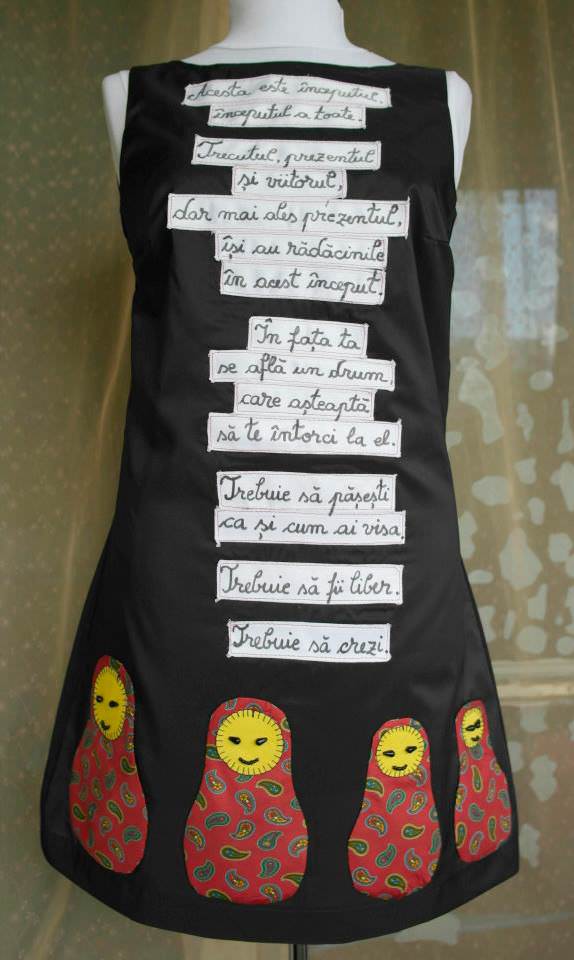 Acesta este începutul.
începutul a toate.
Trecutul, prezentul
și viitorul,
dar mai ales prezentul,
își au rădăcinile
în acest început.
În fața ta
se află un drum,
care așteaptă
să te întorci la el.
Trebuie să pășești
ca și cum ai visa.
Trebuie să fii liber.
Trebuie să crezi.